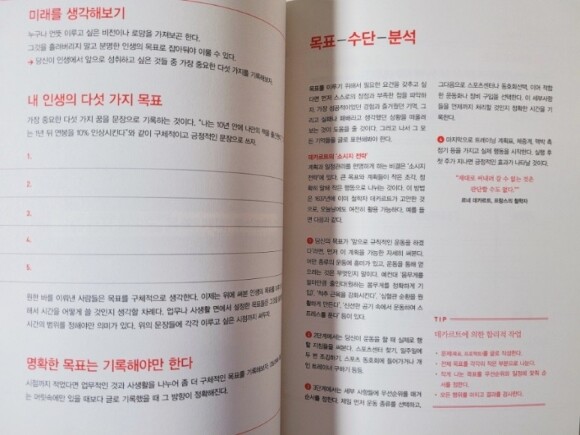 미래를 생각해보기
누구나 언뜻 이루고 싶은 비전이나 로망을 가져보곤 한다.
그것을 흘려버리지 말고 분명한 인생의 목표로 잡아둬야 이룰 수 있다.
→ 당신이 인생에서 앞으로 성취하고 싶은 것들 중 가장 중요한 다섯 가지를 기록해보자.
내 인생의 다섯 가지 목표
가장 중요한 다섯 가지 꿈을 문장으로 기록하는 것이다. "나는 10년 안에 나만의 책을
는 1년 뒤 연봉을 10% 인상시킨다"와 같이 구체적이고 긍정적인 문장으로 쓰자.
1.
2.
3.
4.
5.
원한 바를 이뤄낸 사람들은 목표를 구체적으로 생각한다. 이제는 위에 써본 인생의 목표를
해서 시간을 어떻게 쓸 것인지 생각할 차례다. 업무나 사생활 면에서 설정한 목표들은
시간의 범위를 정해야만 의미가 있다. 위의 문장들에 각각 이루고 싶은 시점까지 써두자.
명확한 목표는 기록해야만 한다
시점까지 적었다면 업무적인 것과 사생활을 나누어 좀 더 구체적인 목표를 기록해보자.
는 머릿속에만 있을 때보다 글로 기록했을 때 그 방향이 정확해진다.
목표-수단-분석
목표를 이루기 위해서 필요한 요건을 갖추고 싶
다면 먼저 스스로의 장점과 부족한 점을 파악하
라. 가장 성공적이었던 경험과 즐거웠던 기억, 그
리고 실패나 패배라고 생각했던 상황을 떠올려
보는 것이 도움을 줄 것이다. 그리고 나서 그 모
든 기억들을 글로 옮겨보자.
데카르트의 '소시지 전략'
계획과 일정관리를 현명하게 하는 비결은 '소시지
전략'에 있다. 큰 목표와 계획들이 작은 조각, 정
확히 말해 작은 행동으로 나뉘는 것이다. 이 방법
은 1637년에 이미 철학자 데카르트가 고안한 것
으로, 오늘날에도 여전히 활용 가능하다. 예를 들
면 다음과 같다.
1 당신의 목표가 '앞으로 규칙적인 운동을 하겠
다'라면, 먼저 이 계획을 가능한 자세히 써본다.
어떤 종류의 운동에 흥미가 있고, 운동을 통해 얻
으려는 것은 무엇인지 말이다. 예컨대 '몸무게를
줄인다(원하는 몸무게를 정확하게 기
입)', '척추 근육을 강화시킨다', '심혈관 순환을 원
활하게 만든다', '신선한 공기 속에서 운동하며 스
트레스를 푼다' 등이다.
2 2단계에서는 당신이 운동을 할 때 실제로 행
할 지침들을 써본다. 스포츠센터 찾기, 일주일에
두 번 조깅하기, 스포츠 동호회에 들어가거나 개인
트레이너 구하기 등등.
3 3단계에서는 세부 사항들에 우선순위를 매겨
순서를 정한다. 제일 먼저 운동 종류를 선택하고,
그다음으로 스포츠센터나 동호회선택, 이어 적합
된 운동화나 장비 구입을 선택한다. 이 세부사항
들을 언제까지 처리할 것인지 정확한 시간을 기
록한다.
4 마지막으로 트레이닝 계획표, 체중계, 맥박 측
정기 등을 가지고 실제 행동을 시작한다. 실행 후
첫 주가 지나면 긍정적인 효과가 나타날 것이다.
"제대로 써내려 갈 수 없는 것은
판단할 수도 없다."
르네 데카르트, 프랑스의 철학자
TIP
데카르트에 의한 합리적 작업
• 문제(과제, 프로젝트)를 글로 작성한다.
• 전체 목표를 각각의 작은 부분으로 나눈다.
• 작게 나눈 목표를 우선순위와 일정에 맞춰 순
서를 정한다.
• 모든 행위를 마치고 결과를 검사한다.